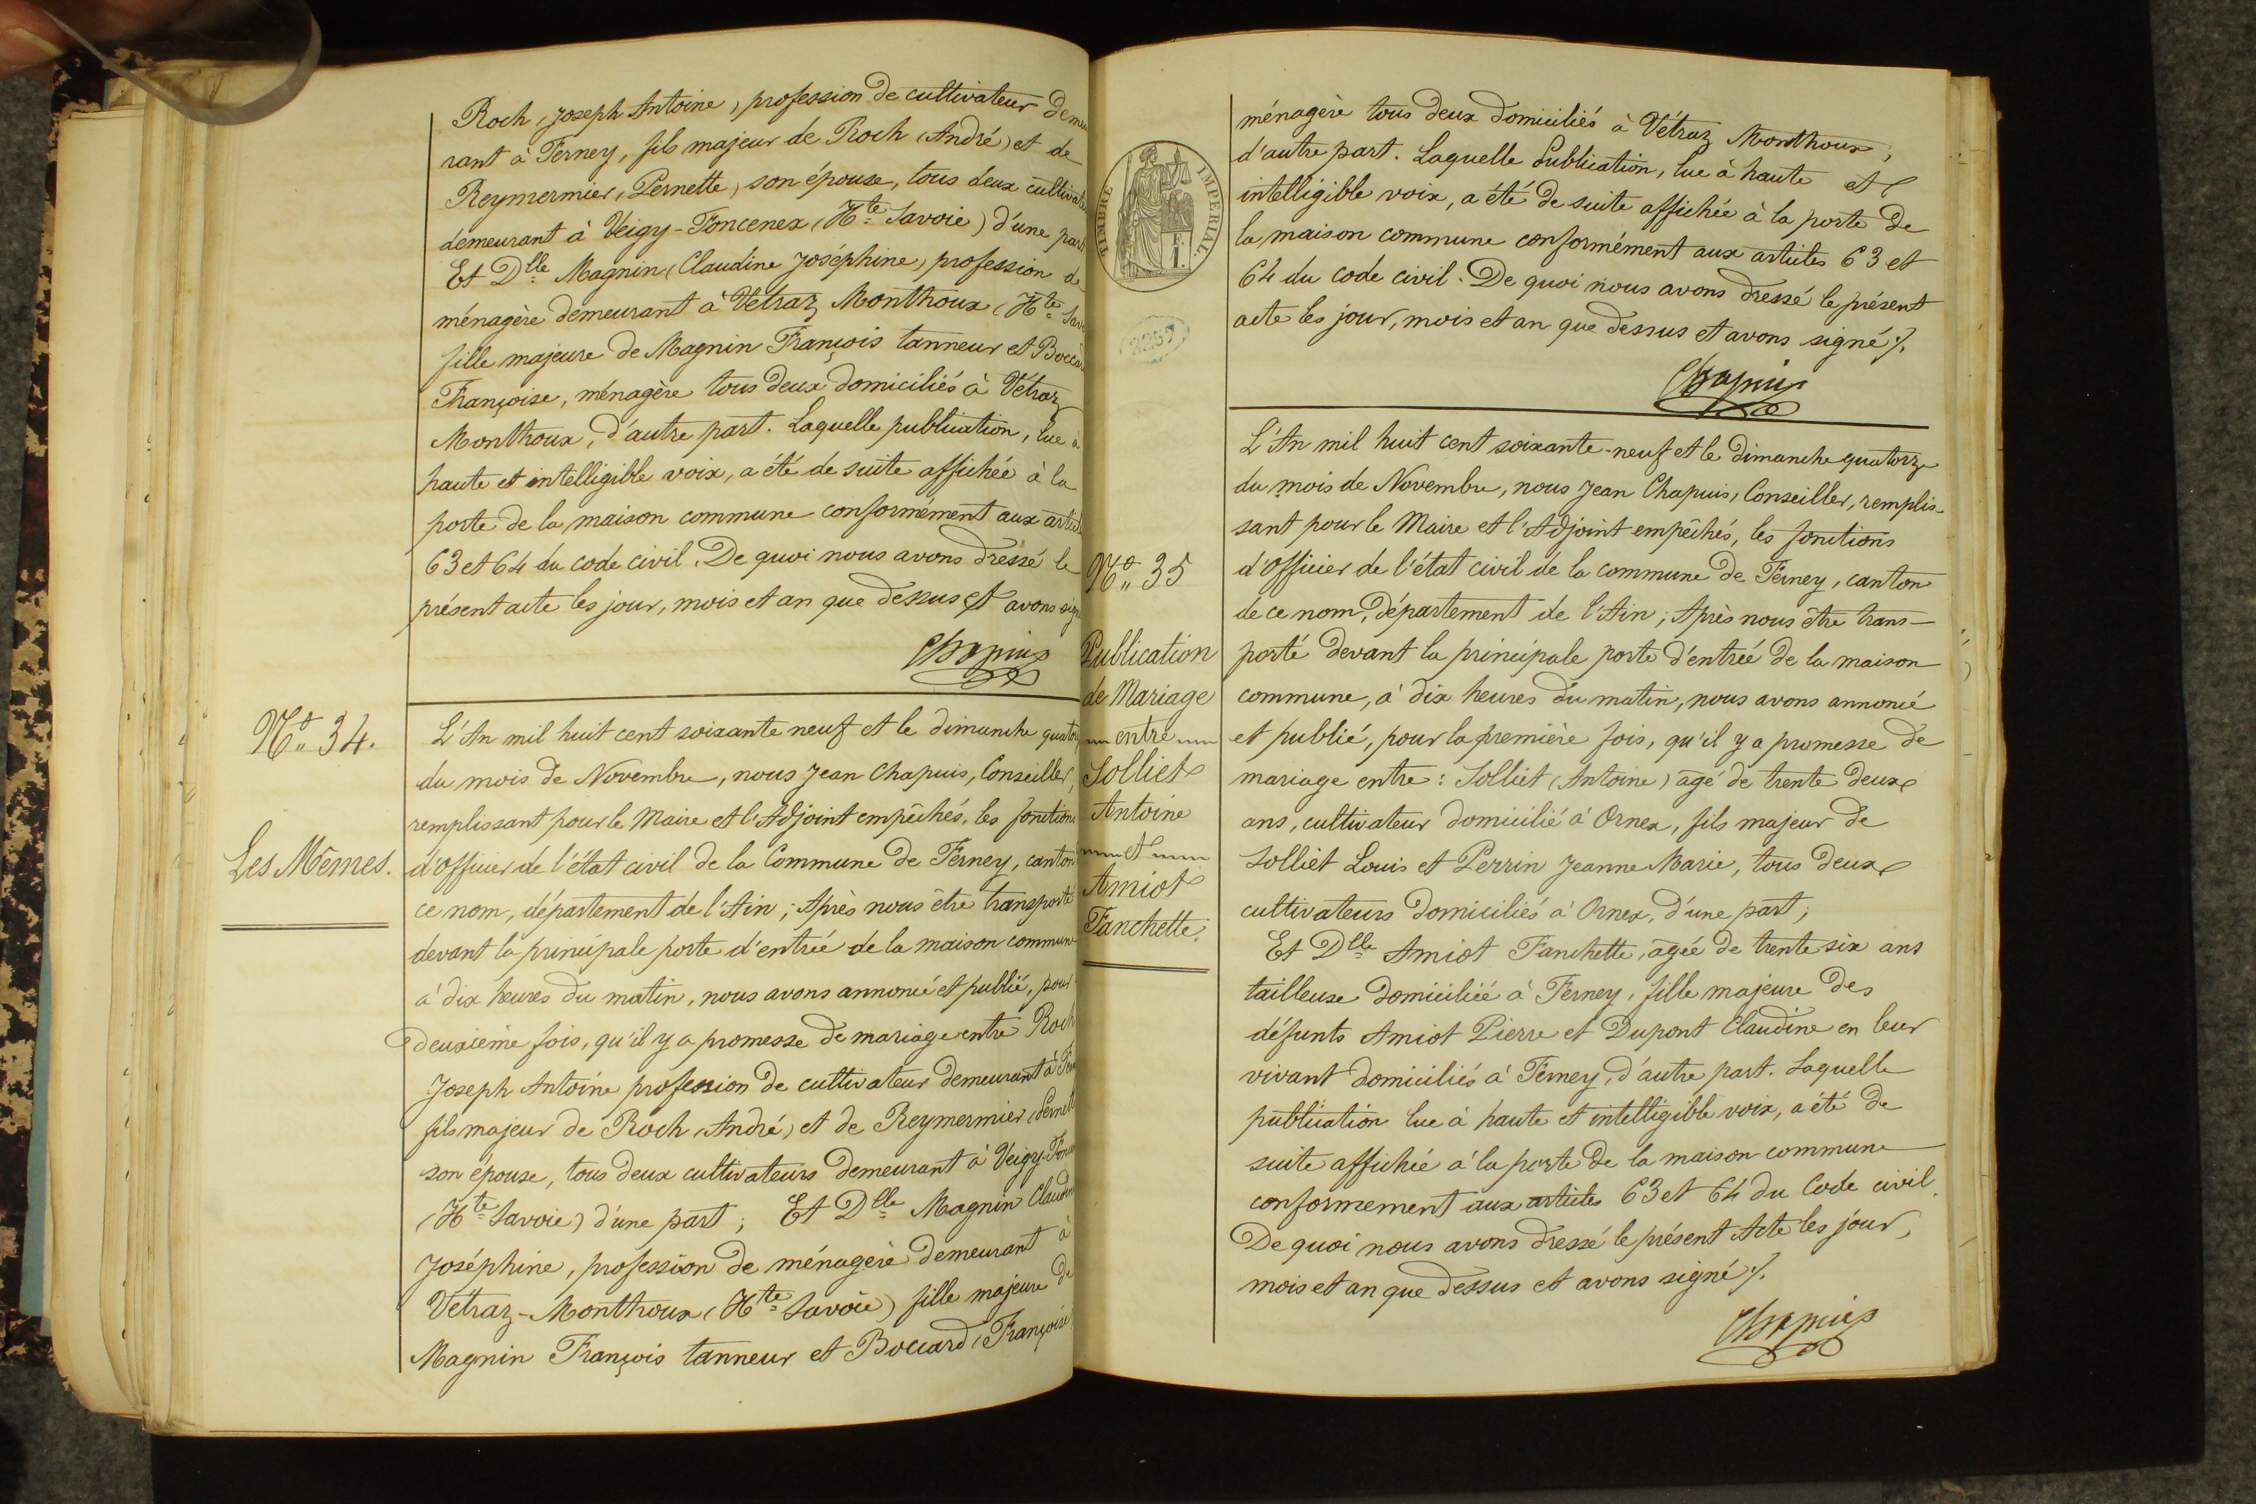 Roch, Joseph Antoine, profession de cultivateur demeu
rant à Ferney, fils majeur de Roch (André) et de
Reymermier, Pernette, son épouse, tous deux cultivate
demeurant à Veigy-Foncenex (Hte Savoie) d'une part
Et Dlle Magnin (Claudine Joséphine) profession de
ménagère demeurant à Vetraz Monthoux (Hte Sav
fille majeure de Magnin François tanneur et Boccar
Françoise, ménagère tous deux domiciliés à Vétraz
Monthoux, d'autre part. Laquelle publication, lue à
haute et intelligible voix, a été de suite affichée à la
porte de la maison commune conformément aux articl
63 et 64 du code civil. De quoi nous avons dressé le
présent acte les jour, mois et an que dessus et avons sign
Chapuis
No 34.
Les Mêmes.
L'An mil huit cent soixante neuf et le dimanche quator
du mois de Novembre, nous Jean Chapuis, Conseiller,
remplissant pour le Maire et l'Adjoint empêchés, les fonctions
d'officier de l'état civil de la Commune de Ferney, canton
ce nom, département de l'Ain; Après nous être transporté
devant la principale porte d'entrée de la maison commune
à dix heures du matin, nous avons annoncé et publié, pour
deuxième fois, qu'il y a promesse de mariage entre Roch
Joseph Antoine profession de cultivateur demeurant à Fer
fils majeur de Roch (André) et de Reymermier (Pernett
son épouse, tous deux cultivateurs demeurant à Veigy-Fonce
(Hte Savoie) d'une part; Et Dlle Magnin Claudin
Joséphine, profession de ménagère demeurant à
Vetraz-Monthoux (Hte Savoie) fille majeure de
Magnin François tanneur et Boccard (Françoise)
TIMBRE IMPÉRIAL
ménagère tous deux domiciliés à Vétraz Monthoux,
d'autre part. Laquelle Publication, lue à haute et
intelligible voix, a été de suite affichée à la porte de
la maison commune conformément aux articles 63 et
64 du code civil. De quoi nous avons dressé le présent
acte les jour, mois et an que dessus et avons signé ./.
Chapuis
No 35
Publication
de Mariage
entre
Solliet
Antoine
et
Amiot
Fanchette.
L'An mil huit cent soixante-neuf et le dimanche quatorze
du mois de Novembre, nous Jean Chapuis, Conseiller, remplis-
sant pour le Maire et l'Adjoint empêchés, les fonctions
d'officier de l'état civil de la commune de Ferney, canton
de ce nom, département de l'Ain; Après nous être trans-
porté devant la principale porte d'entrée de la maison
commune, à dix heures du matin, nous avons annoncé
et publié, pour la première fois, qu'il y a promesse de
mariage entre: Solliet (Antoine) agé de trente deux
ans, cultivateur domicilié à Ornex, fils majeur de
Solliet Louis et Perrin Jeanne Marie, tous deux
cultivateurs domiciliés à Ornex, d'une part;
Et Dlle Amiot Fanchette, agée de trente six ans
tailleuse domiciliée à Ferney, fille majeure des
défunts Amiot Pierre et Dupont Claudine en leur
vivant domiciliés à Ferney, d'autre part. Laquelle
publication lue à haute et intelligible voix, a été de
suite affichée à la porte de la maison commune
conformement aux articles 63 et 64 du Code civil.
De quoi nous avons dressé le présent Acte les jour,
mois et an que dessus et avons signé ./.
Chapuis